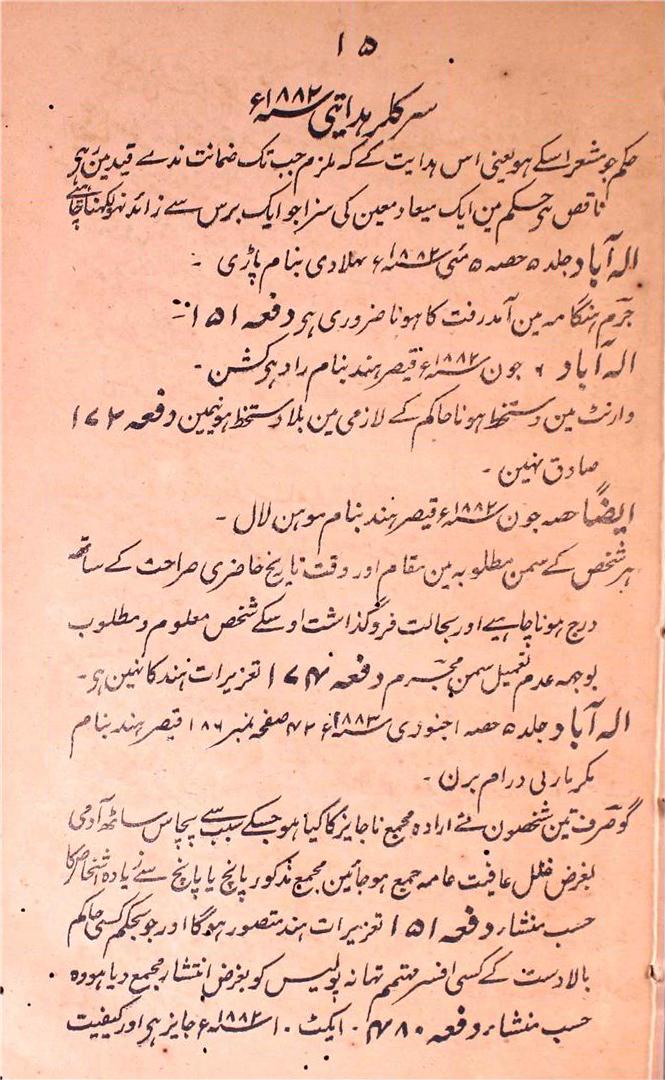 ۱۵
سرکلر ہدایتی ۱۸۸۲ء
حکم جو مشعر اسکے ہو یعنی اس ہدایت کے کہ ملزم جب تک ضمانت ندے قید مین رہے
ناقص ہی حکم مین ایک میعاد معین کی سزا جو ایک برس سے زائد نہو لکھنا چاہیے
الہ آباد جلد ۵ حصہ ۵ مئی ۱۸۸۲ء بنام
جرم ہنگامہ مین آمدرفت کا ہونا ضروری ہی دفعہ ۱۵۱ ۔
الہ آباد ۶ جون ۱۸۸۲ء قیصر ہند بنام رادہو کشن ۔
وارنٹ مین دستخط ہونا حاکم کے لازمی مین بلا دستخط ہونیمین دفعہ ۱۷۲
صادق نہین ۔
ایضاً حصہ جون ۱۸۸۲ء قیصر ہند بنام موہن لال ۔
ہر شخص کے سمن مطلوبہ مین مقام اور وقت تاریخ حاضری صراحت کے ساتھ
درج ہونا چاہیے اور بحالت فروگذاشت اوسکے شخص معلوم و مطلوب
بوجہ عدم تعمیل سمن مجرم دفعہ ۱۷۴ تعزیرات ہند کا نہین ہی ۔
الہ آباد جلد ۵ حصہ ۱ جنوری ۱۸۸۳ء صفحہ نمبر ۱۸۶ قیصر ہند بنام
رام برن ۔
گو صرف تین شخصون نے ارادہ مجمع ناجایز کا کیا ہو جسکے سبب سے پچاس ساٹھ آدمی
بغرض خلل عافیت عامہ جمع ہو جائین مجمع مذکور پانچ یا پانچ سے زیادہ اشخاص کا
حسب منشاء دفعہ ۱۵۱ تعزیرات ہند متصور ہوگا اور جو بحکم کسی حاکم
بالادست کے کسی افسر مہتمم تھانہ پولیس کو بغرض انتشار مجمع دیا ہو وہ
حسب منشاء دفعہ ۴۸۰ ۔ ایکٹ ۱۰ ۱۸۸۲ء جایز ہی اور کیفیت